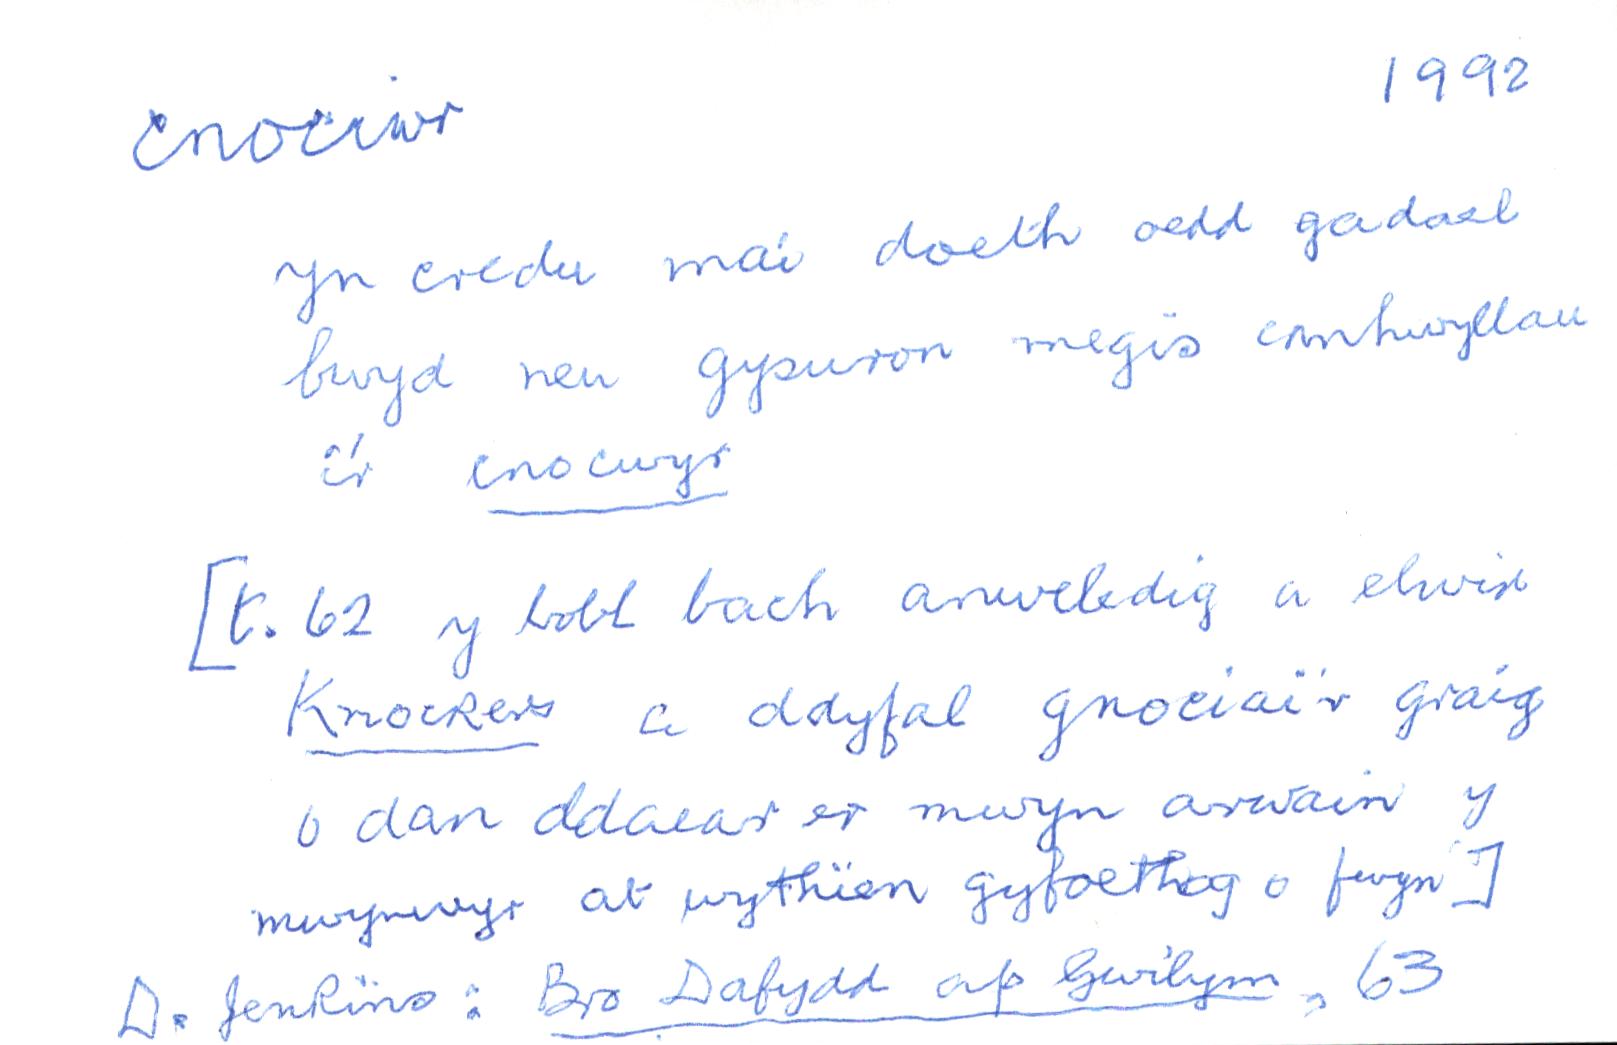 cnociwr 1992
yn credu mai doeth oedd gadael
bwyd neu gysuron megis canhwyllau
i'r cnocwyr
[t. 62 y bobl bach anweledig a elwid
Knockers a ddyfal gnociai'r graig
o dan ddaear er mwyn arwain y
mwynwyr at wythïen gyfoethog o fwyn]
D. Jenkins: Bro Dafydd ap Gwilym, 63